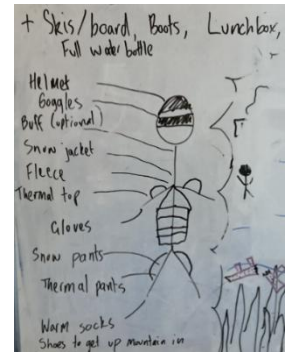 + Skis/board, Boots, Lunchbox,
Full water bottle
Helmet
Goggles
Buff (optional)
Snow jacket
Fleece
Thermal top
Gloves
Snow pants
Thermal pants
Warm socks
Shoes to get up mountain in